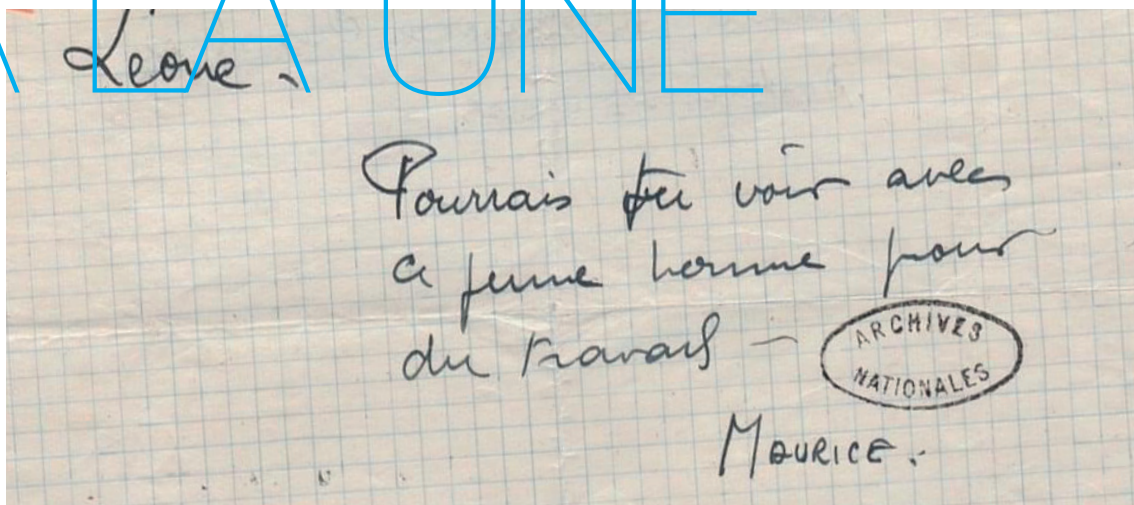 À LA UNE
Léone.
Pourrais tu voir avec
ce jeune homme pour
du travail –
ARCHIVES
NATIONALES
MAURICE.